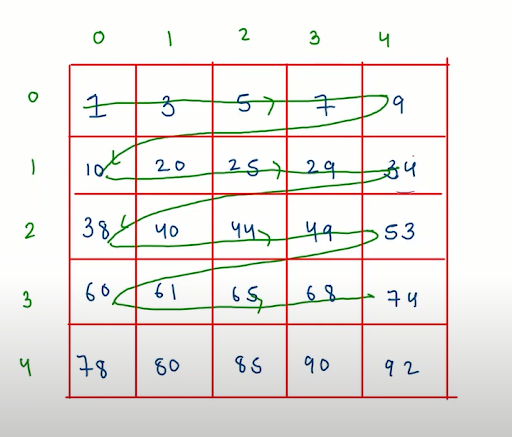 0 1 2 3 4
0 1 3 5 7 9
1 10 20 25 29 34
2 38 40 44 49 53
3 60 61 65 68 74
4 78 80 85 90 92